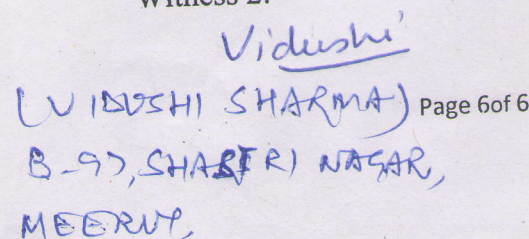 Witness 2:
Vidushi
(VIDUSHI SHARMA) Page 6of 6
B-97, SHASTRI NAGAR,
MEERUT,